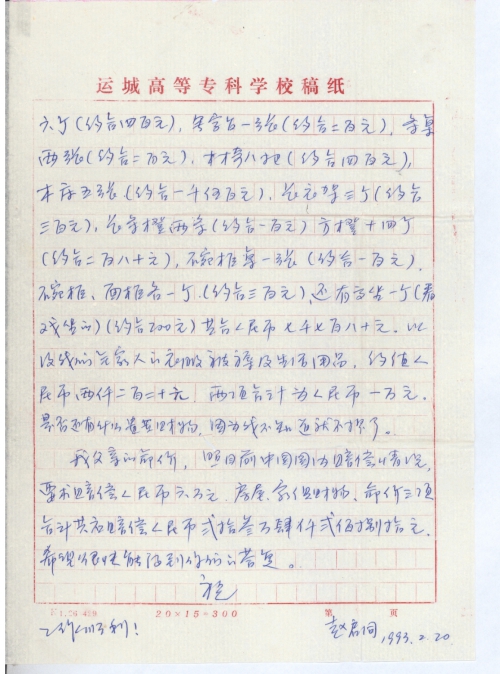 运城高等专科学校稿纸
六个(约合四百元),条案台一张(约合二百元),方桌
两张(约合二百元),木椅八把(约合四百元),
木床五张(约合一千伍百元),花衣架三个(约合
三百元),长条櫈两条(约合一百元)方櫈十四个
(约合二百八十元),碗柜桌一张(约合一百元),
碗柜、面柜各一个(约合三百元),还有高坐一个(看
戏坐的)(约合200元)共合人民币七千七百八十元。以
及我们全家人的衣服被褥及生活用品,约值人
民币两仟二百二十元,两项合计为人民币一万元。
是否还有什么遗失财物,因为我不知道就不提了。
我父亲的命价,照目前中国国内赔偿的情况,
要求赔偿人民币六万元,房屋、家俱财物、命价三项
合计共应赔偿人民币贰拾叁万肆仟贰佰捌拾元。
希望很快能得到你们的答复。
祝
工作顺利!
20×15=300
第 页
赵君同 1993.2.20